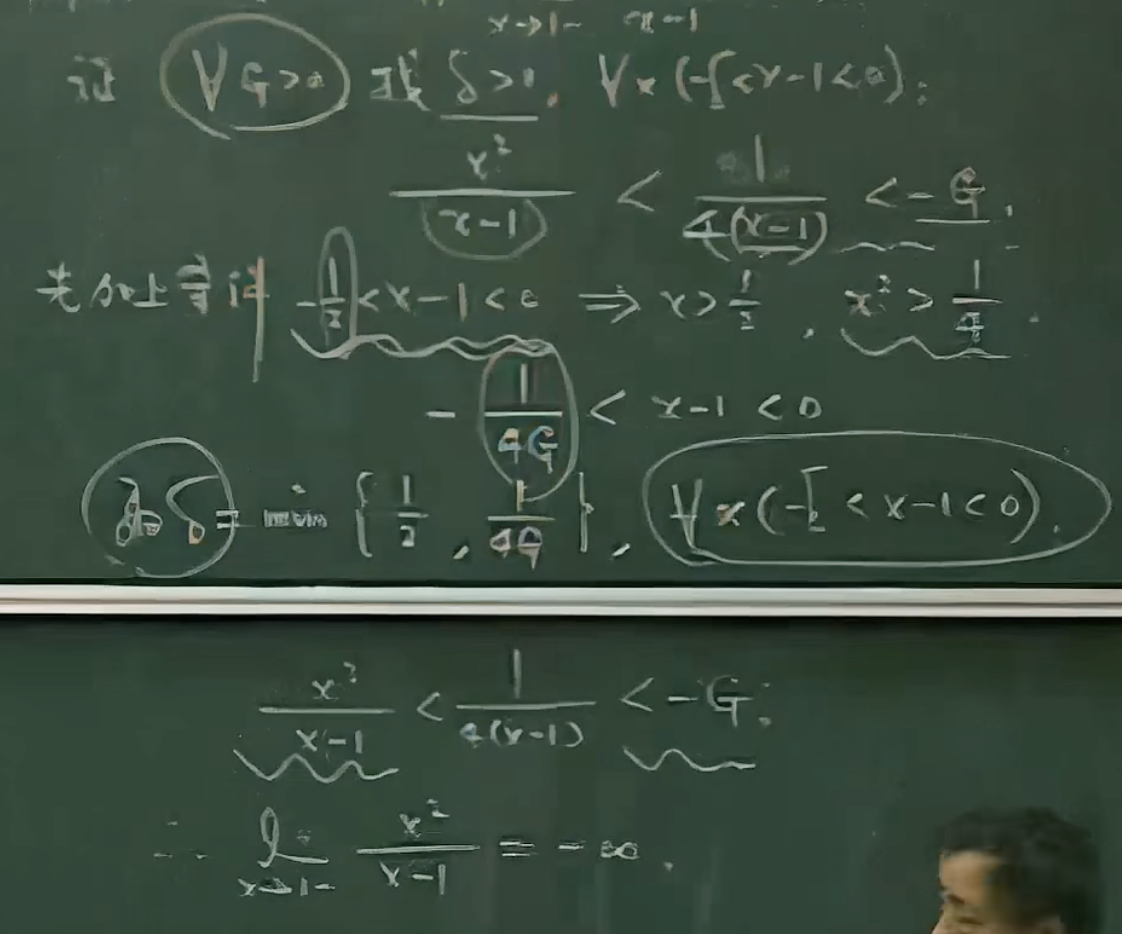 x→1- x-1
证 ∀G>0 找 δ>0, ∀x(-δ<x-1<0):
x²/(x-1) < 1/(4(x-1)) < -G.
先加上条件 -1/2<x-1<0 ⇒ x>1/2, x²>1/4.
- 1/(4G) < x-1 < 0
取δ= min{1/2, 1/(4G)}, ∀x(-δ<x-1<0).
x²/(x-1) < 1/(4(x-1)) < -G.
∴ lim x→1- x²/(x-1) = -∞.